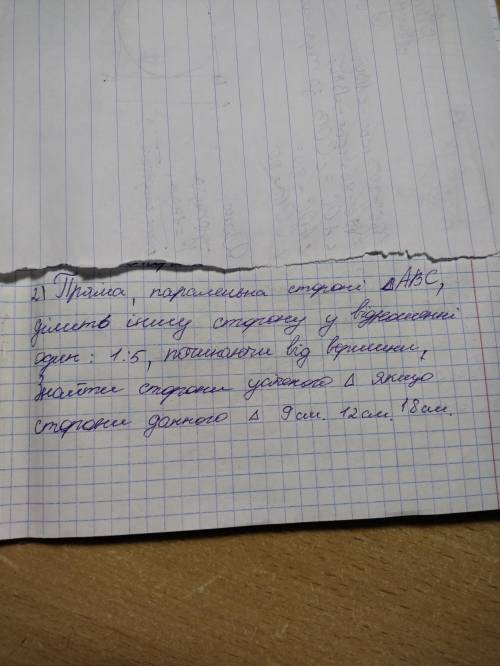 2) Пряма, паралельна стороні △ABC,
ділить іншу сторону у відношенні
один : 1:5, починаючи від вершини,
Знайти сторони △ якщо
сторони данного △ 9см. 12см. 18см.